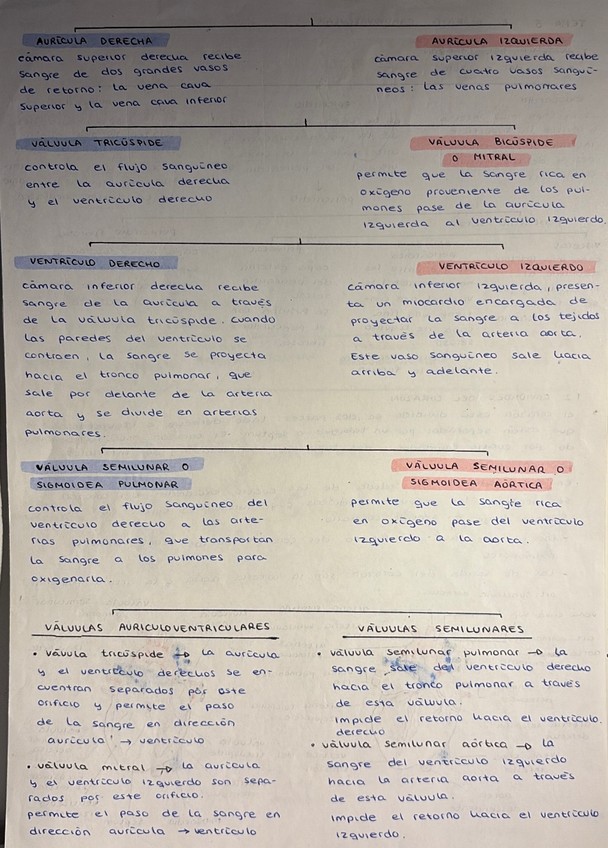 AURÍCULA DERECHA
cámara superior derecha recibe
sangre de dos grandes vasos
de retorno: la vena cava
superior y la vena cava inferior
AURÍCULA IZQUIERDA
cámara superior izquierda recibe
sangre de cuatro vasos sanguí-
neos: las venas pulmonares
VÁLVULA TRICÚSPIDE
controla el flujo sanguíneo
entre la aurícula derecha
y el ventrículo derecho
VÁLVULA BICÚSPIDE
O MITRAL
permite que la sangre rica en
oxígeno proveniente de los pul-
mones pase de la aurícula
izquierda al ventrículo izquierdo.
VENTRÍCULO DERECHO
cámara inferior derecha recibe
sangre de la aurícula a través
de la válvula tricúspide. cuando
las paredes del ventrículo se
contraen, la sangre se proyecta
hacia el tronco pulmonar, que
sale por delante de la arteria
aorta y se divide en arterias
pulmonares.
VENTRÍCULO IZQUIERDO
cámara inferior izquierda, presen-
ta un miocardio encargada de
proyectar la sangre a los tejidos
a través de la arteria aorta.
Este vaso sanguíneo sale hacia
arriba y adelante.
VÁLVULA SEMILUNAR O
SIGMOIDEA PULMONAR
controla el flujo sanguíneo del
ventrículo derecho a las arte-
rias pulmonares, que transportan
la sangre a los pulmones para
oxigenarla.
VÁLVULA SEMILUNAR O
SIGMOIDEA AÓRTICA
permite que la sangre rica
en oxígeno pase del ventrículo
izquierdo a la aorta.
VÁLVULAS AURICULOVENTRICULARES
• vávula tricúspide → la aurícula
y el ventrículo derechos se en-
cuentran separados por este
orificio y permite el paso
de la sangre en dirección
aurícula → ventrículo
• válvula mitral → la aurícula
y el ventrículo izquierdo son sepa-
rados por este orificio.
permite el paso de la sangre en
dirección aurícula → ventrículo
VÁLVULAS SEMILUNARES
• válvula semilunar pulmonar → la
sangre sale del ventrículo derecho
hacia el tronco pulmonar a través
de esta válvula.
impide el retorno hacia el ventrículo.
derecho
• válvula semilunar aórtica → la
sangre del ventrículo izquierdo
hacia la arteria aorta a través
de esta válvula.
impide el retorno hacia el ventrículo
izquierdo.